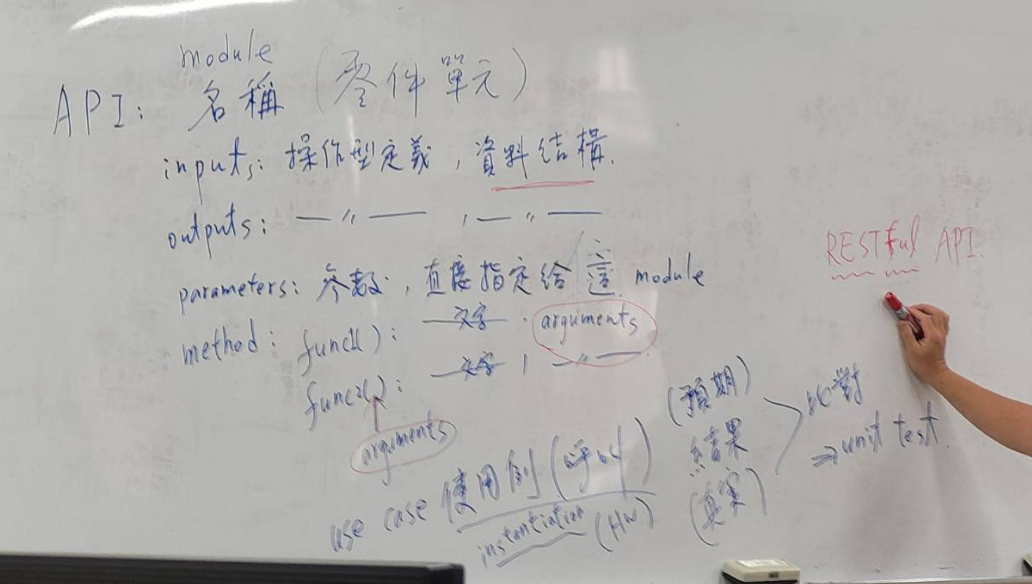 module
API: 名稱 (零件單元)
inputs: 操作型定義, 資料結構.
outputs: — 〃 — , — 〃 —
parameters: 參數, 直接指定給這 module
method: func1( ): 文字 . arguments
func2( ): 文字 , — 〃 —
arguments
use case 使用例 (呼叫)
instantiation (HW)
(預期)
結果
(真實)
比對
⇒ unit test
RESTful API.